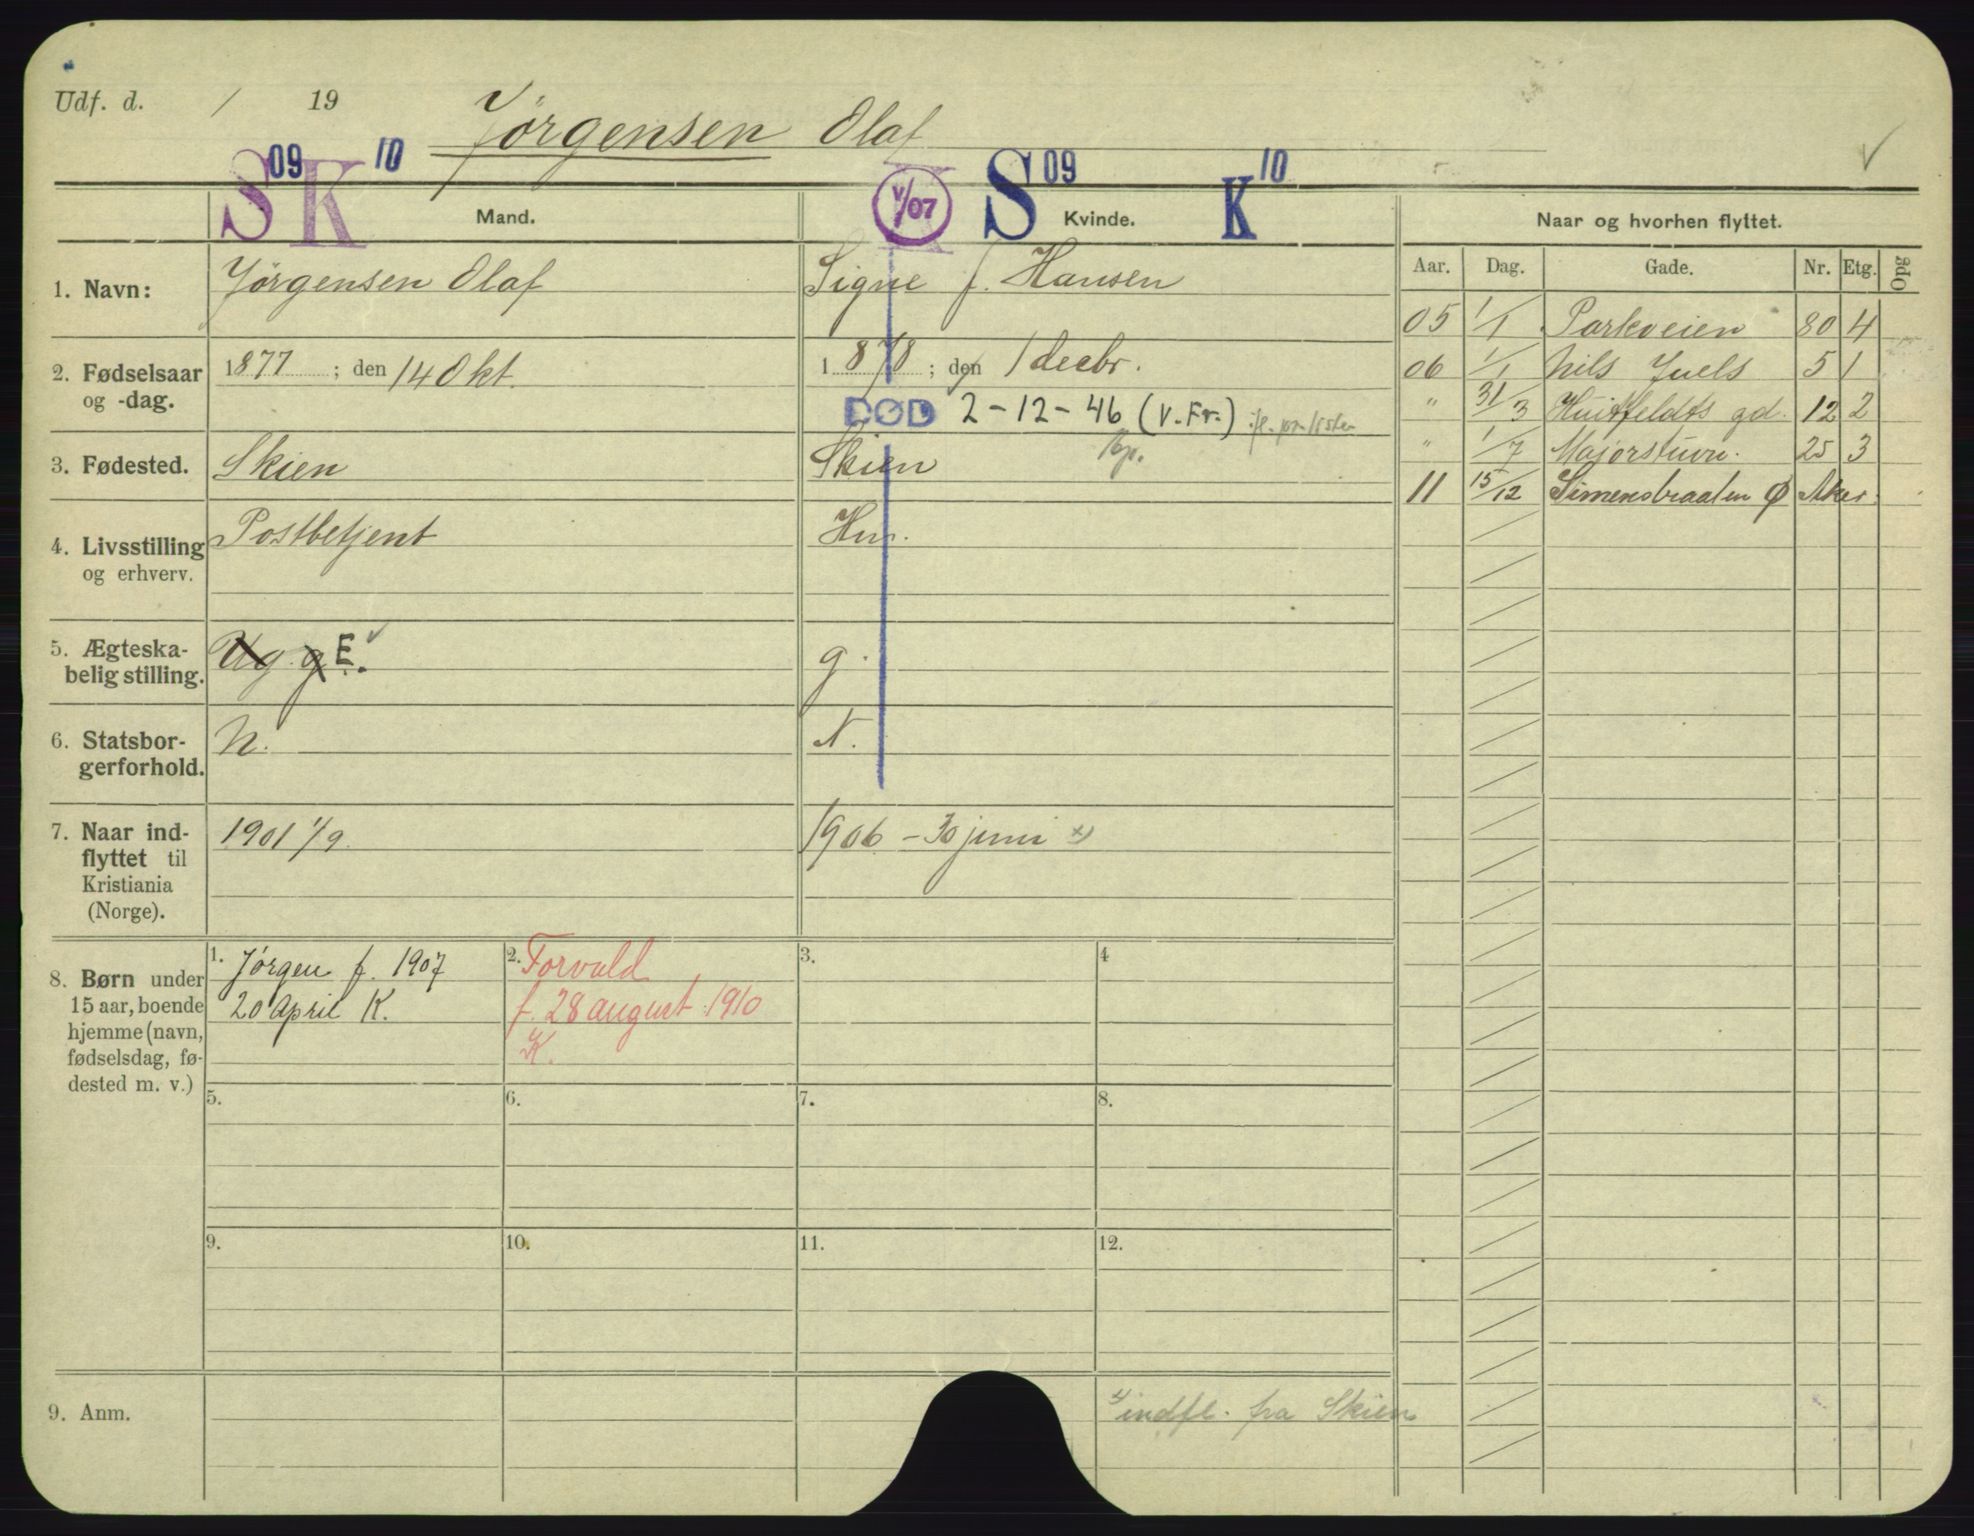 Udf. d. / 19
Jørgensen Olaf
S 09 K 10
V/07 S 09 K 10
Mand. Kvinde. Naar og hvorhen flyttet.
Aar. Dag. Gade. Nr. Etg. Opg
1. Navn: Jørgensen Olaf Signe f. Hansen
05 1/1 Parkveien 80 4
2. Fødselsaar og -dag. 1877 ; den 14 Okt. 1878 ; den 1 decbr.
06 1/1 Nils Juels 5 1
DØD 2-12-46 (V.Fr.)
" 31/3 Huitfeldts gd. 12 2
3. Fødested. Skien Skien
" 1/7 Majorstuvn. 25 3
11 15/12 Simensbraaten Ø Aker.
4. Livsstilling og erhverv. Postbetjent Hu.
5. Ægteska-
belig stilling. Ug. g E. g.
6. Statsbor-
gerforhold. N. N.
7. Naar ind-
flyttet til
Kristiania
(Norge).
1901 1/9. 1906 - 30 juni x)
8. Børn under
15 aar, boende
hjemme (navn,
fødselsdag, fø-
dested m. v.)
1. Jørgen f. 1907
20 April K.
2. Torvald
f. 28 august 1910
K.
3.
4
5.
6.
7.
8.
9.
10.
11.
12.
9. Anm. x) indfl. fra Skien